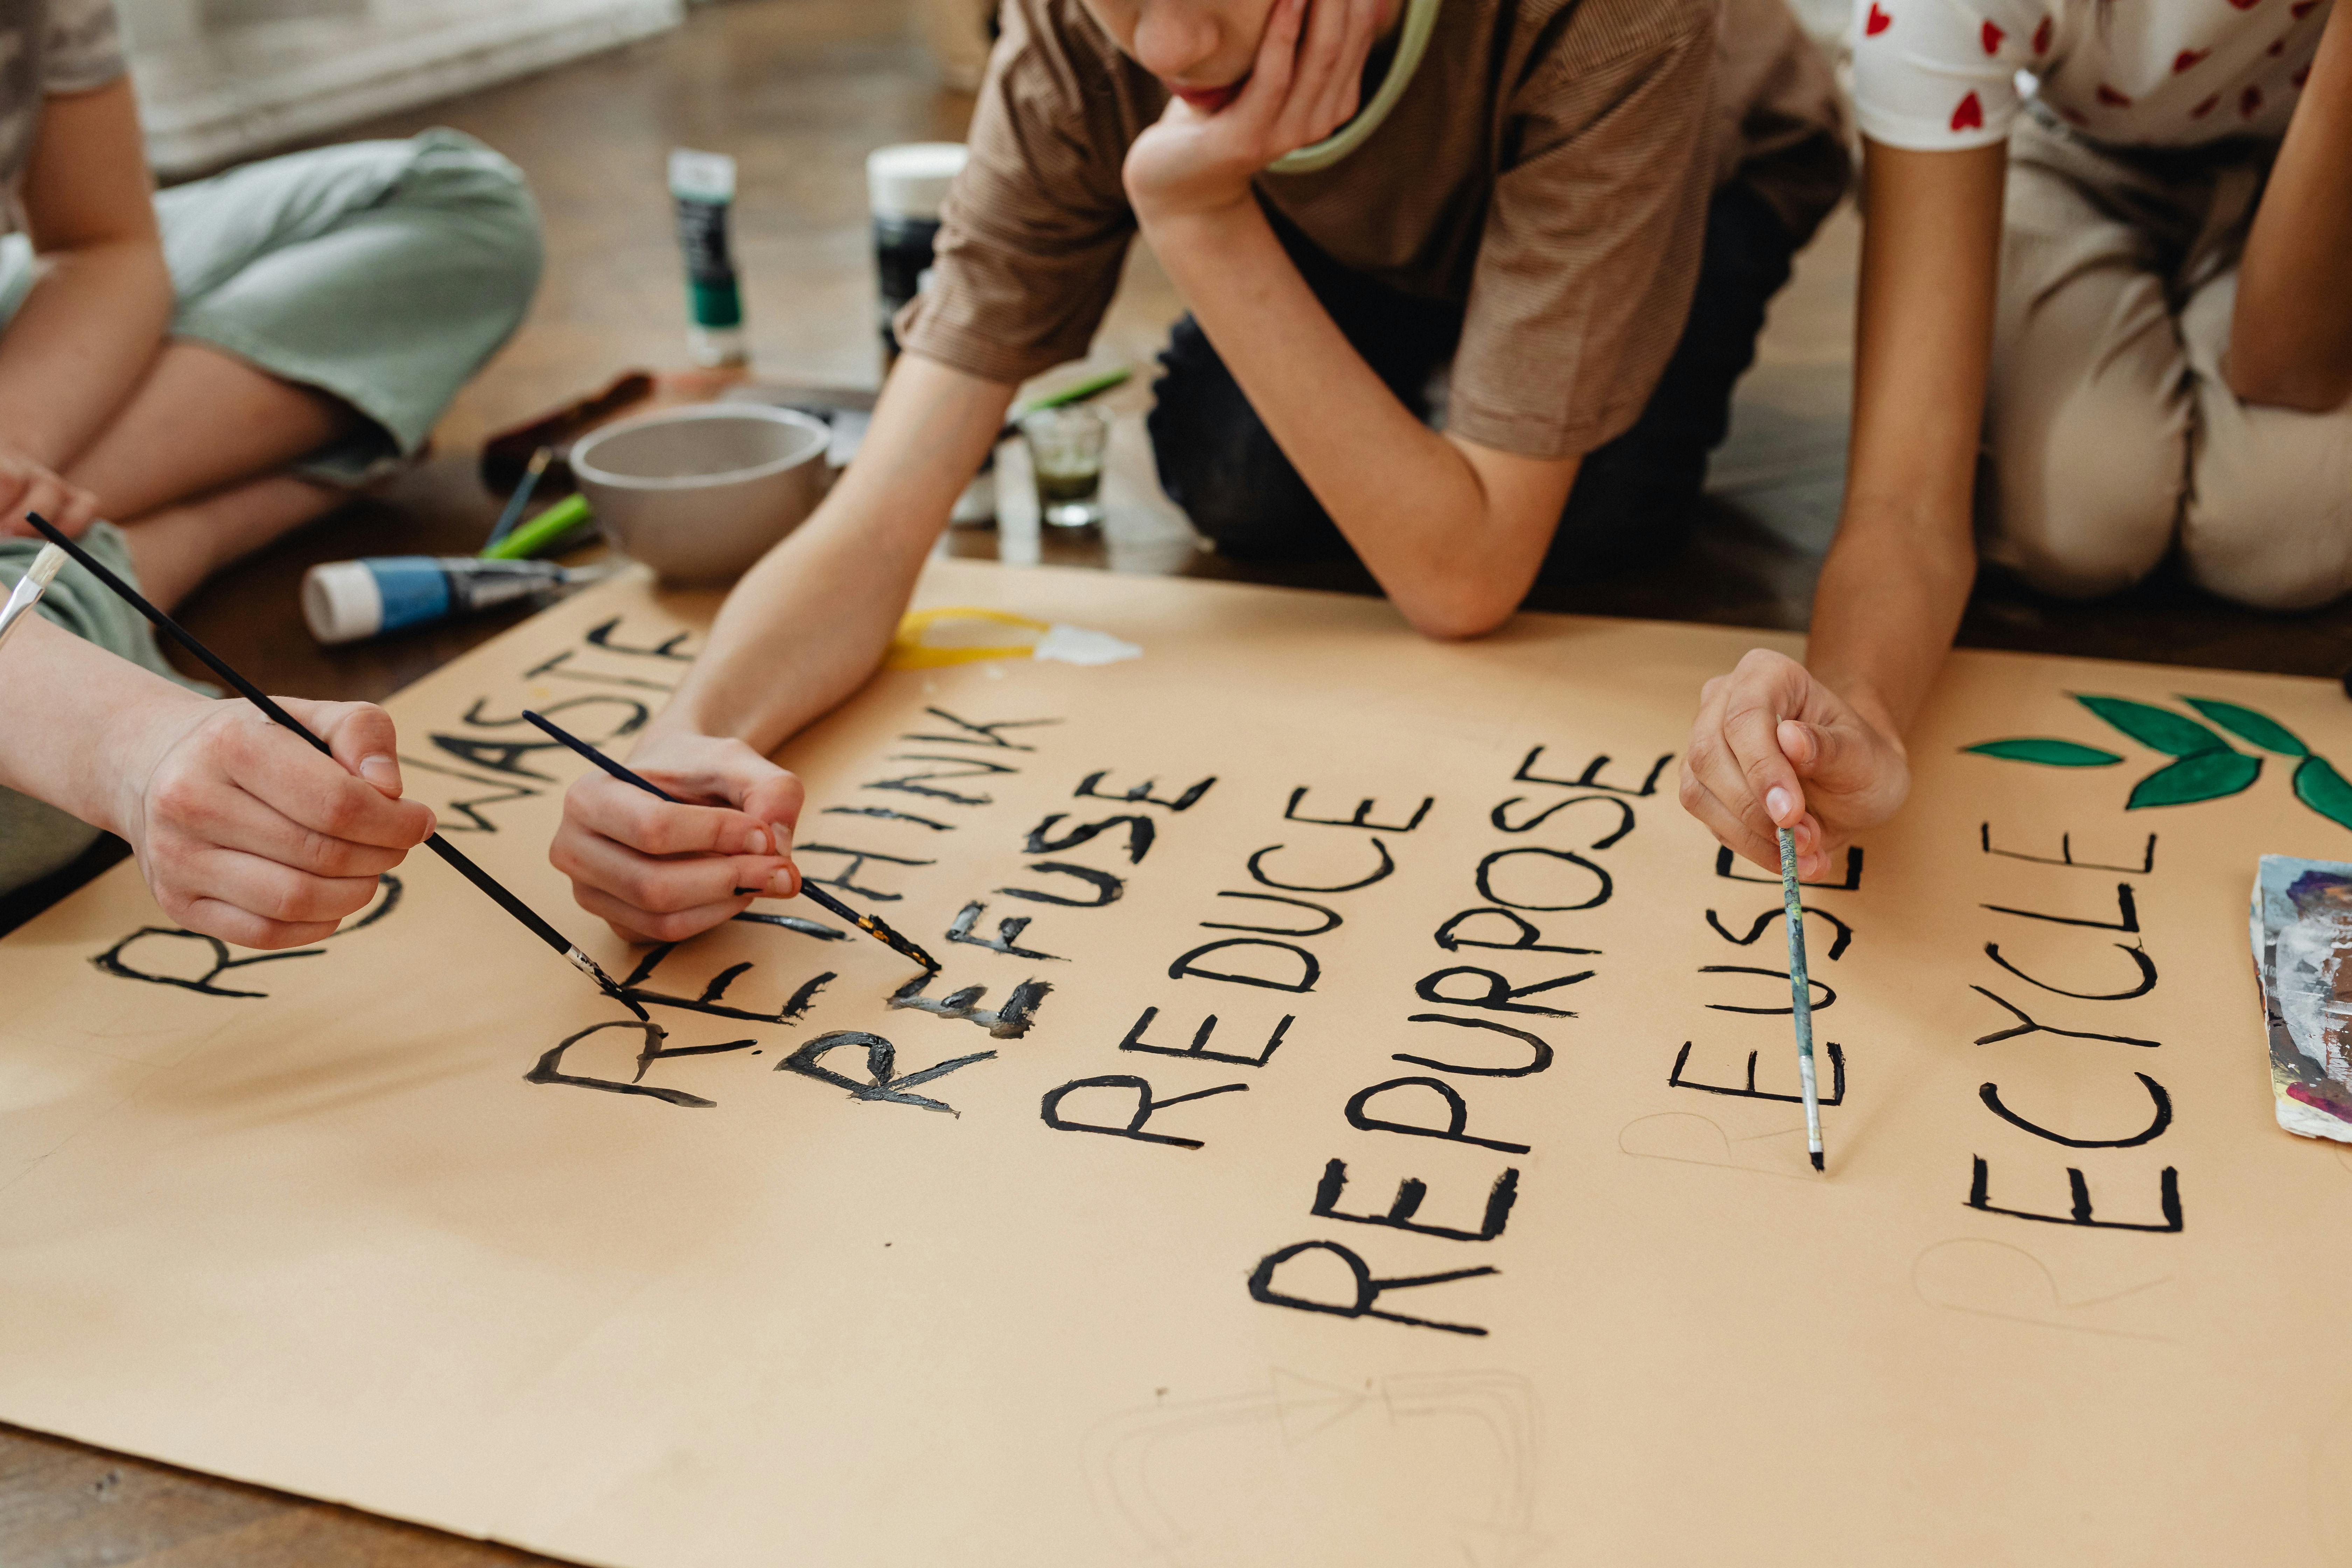 RO WASTE
RETHINK
REFUSE
REDUCE
REPURPOSE
REUSE
RECYCLE